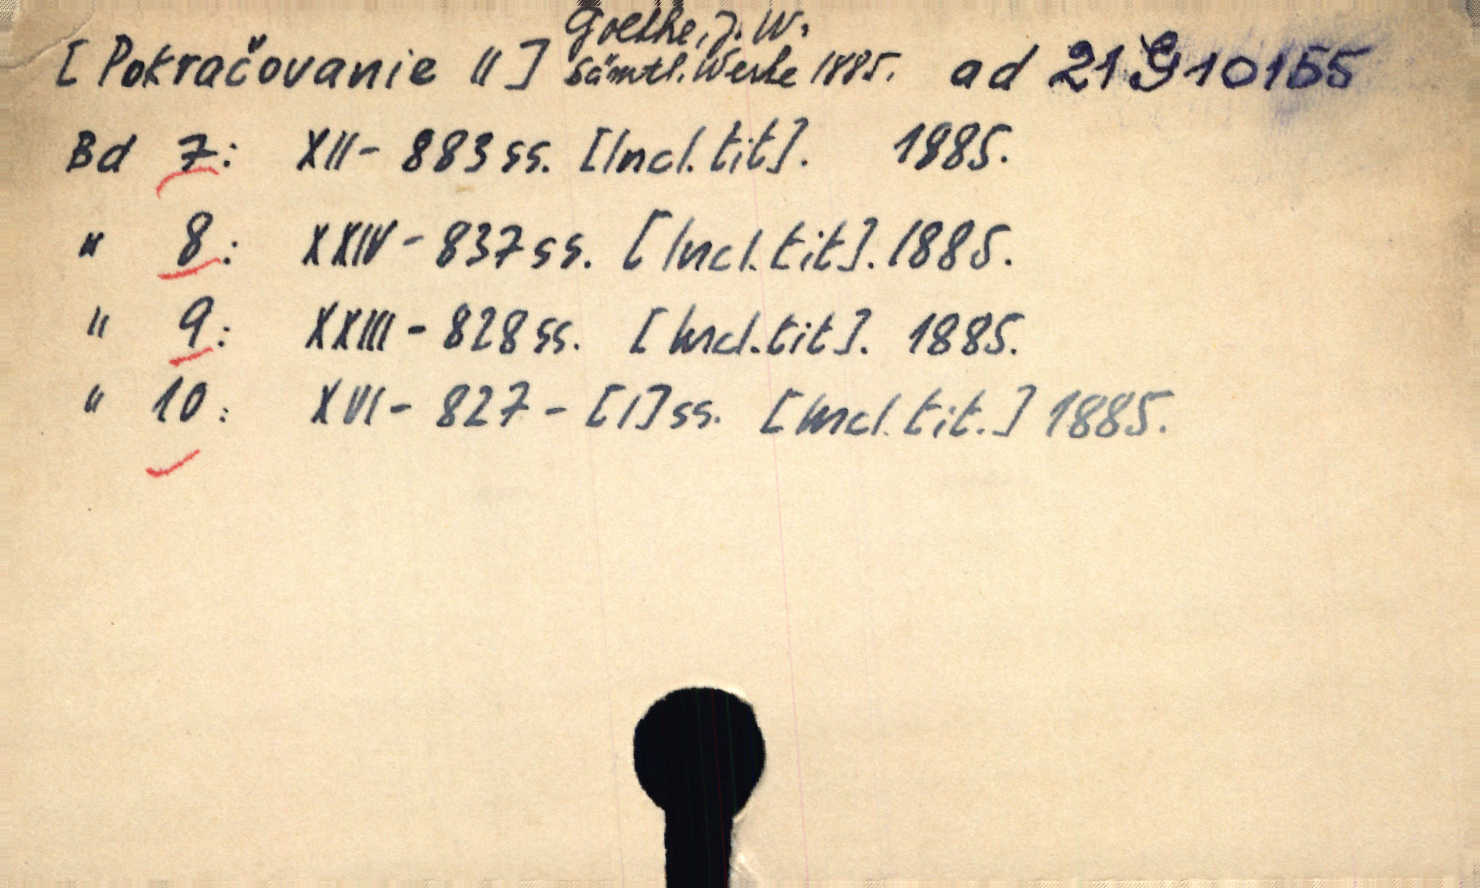 Goethe, J. W.
[Pokračovanie "] Sämtl. Werke 1885. ad 21 G 10155
Bd 7: XII - 883 ss. [Incl. tit]. 1885.
" 8: XXIV - 837 ss. [Incl. tit]. 1885.
" 9: XXIII - 828 ss. [Incl. tit]. 1885.
" 10: XVI - 827 - [1] ss. [Incl. tit.] 1885.